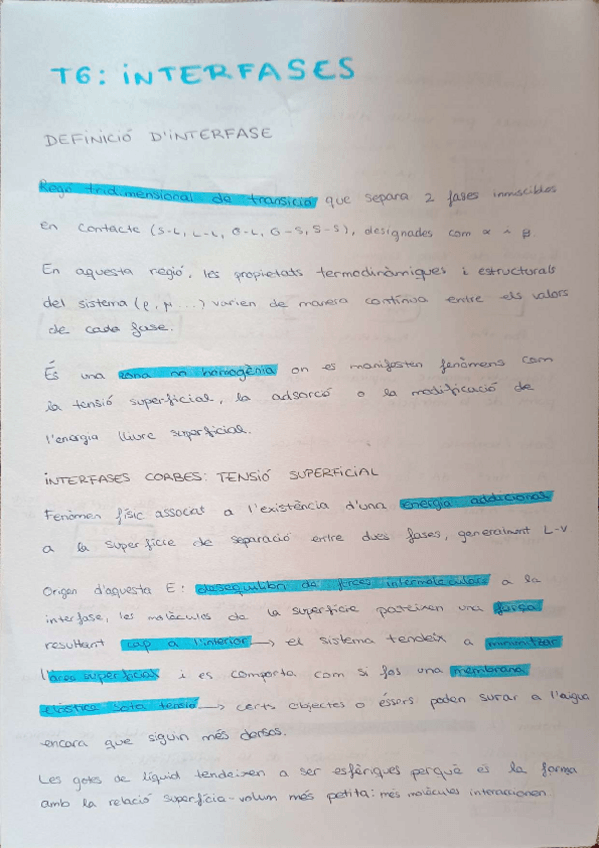 T6: INTERFASES
DEFINICIÓ D'INTERFASE
Regió tridimensional de transició que separa 2 fases inmiscibles
en contacte (S-L, L-L, G-L, G-S, S-S), designades com α i β.
En aquesta regió, les propietats termodinàmiques i estructurals
del sistema (ρ, μ ...) varien de manera contínua entre els valors
de cada fase.
És una zona no homogènia on es manifesten fenòmens com
la tensió superficial, la adsorció o la modificació de
l'energia lliure superficial.
INTERFASES CORBES: TENSIÓ SUPERFICIAL
Fenòmen físic associat a l'existència d'una energia addicional
a la superfície de separació entre dues fases, generalment L-V
Origen d'aquesta E: desequilibri de forces intermoleculars a la
interfase, les molècules de la superfície pateixen una força
resultant cap a l'interior → el sistema tendeix a minimitzar
l'àrea superficial i es comporta com si fos una membrana
elàstica sota tensió → certs objectes o éssers poden surar a l'aigua
encara que siguin més densos.
Les gotes de líquid tendeixen a ser esfèriques perquè és la forma
amb la relació superfície-volum més petita: més molècules interaccionen